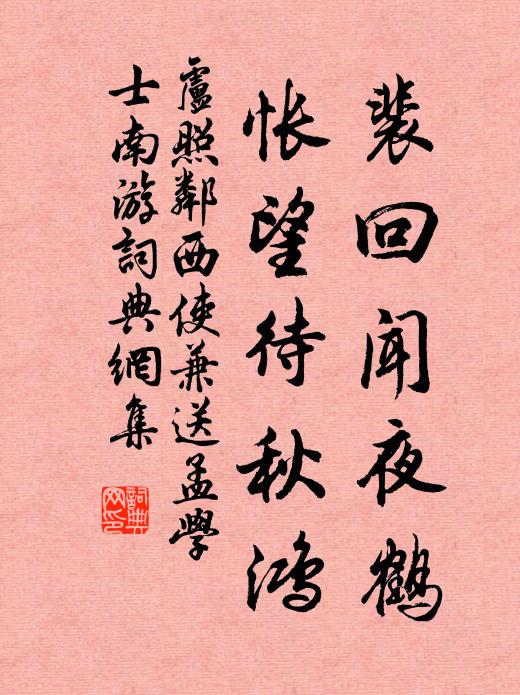 裴回闻夜鶴
怅望待秋鴻
盧照鄰西使兼送孟學
士南游詞典網集
詞典
网印